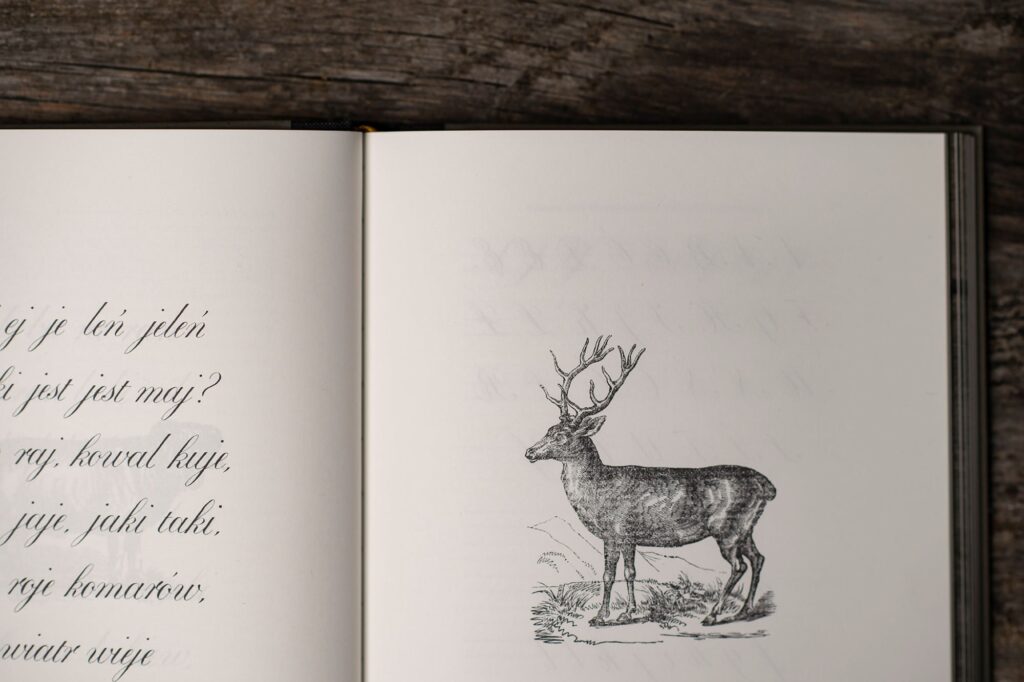 ej je leń jeleń
jest jest maj?
raj, kowal kuje,
jaje, jaki taki,
roje komarów,
wiatr wieje